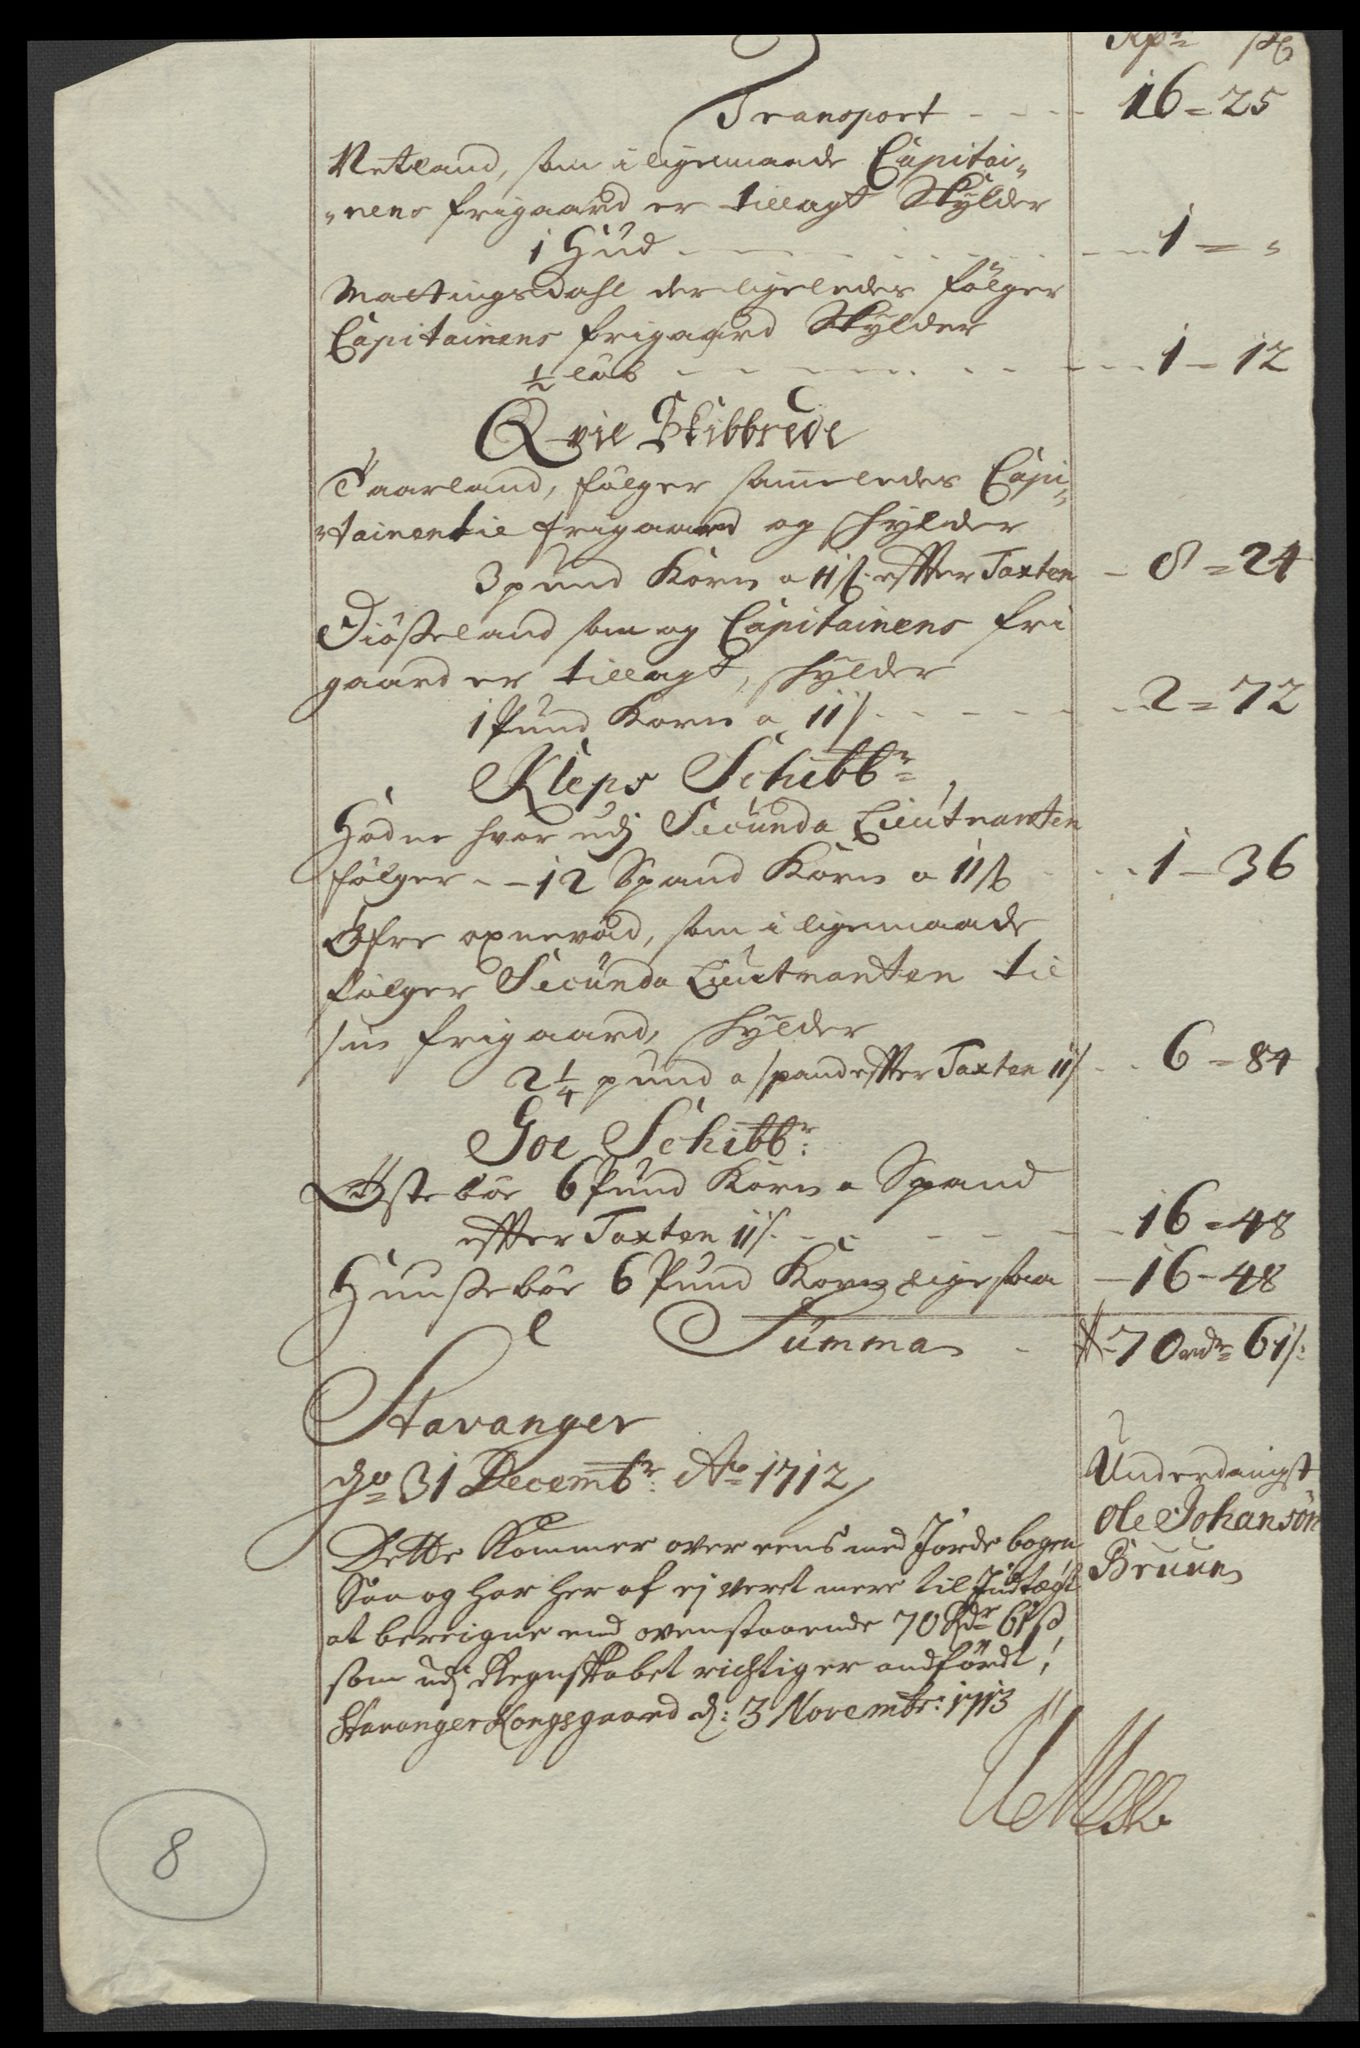 Rdr ß
Transport - - - 16 = 25
Netland, som i ligemaade Capitai„
„nens frigaard er tillagt Skylder
1 Hud - - - - 1 = „
Maltingsdahl der ligeledes følger
Capitainens frigaard Skylder
½ løb - - - - 1 - 12
Qvie Skibbrede
Taarland, følger sammeledes Capi„
„tainen til frigaard og skylder
3 pund Korn a 11 ß efter Taxten - 8 = 24
Giøsseland som og Capitainens fri
gaard er tillagt, skylder
1 Pund Korn a 11 ß - - - - 2 = 72
Kleps Schibbr
Hodne hvor udj Secunda Lieutnanten
følger - - 12 Spand Korn a 11 ß - - 1 - 36
Øfre oxnevad, som i ligemaade
følger Secunda Lieutnanten til
sin frigaard, skylder
2¼ pund a spand efter Taxten 11 ß - - 6 = 84
Goe Schibbr:
Østebøe 6 Pund Korn a Spand
efter Taxten 11 ß - - - - 16 = 48
Huussebøe 6 Pund Korn ligesaa - 16 - 48
Summa - 70 rdr 61 ß:
Stavanger
dend 31 Decembr: Ao 1712
Underdanigst
Ole Johansøn
Bruun
Dette Kommer over eens med Jorde bogen
Saa og har her af ej veret mere til Indtægt
at bereigne end ovenstaaende 70 Rdr 61 ß,
som udj Regnskabet richtig er andført,
Stavanger Kongsgaard d: 3 Novembr: 1713
8